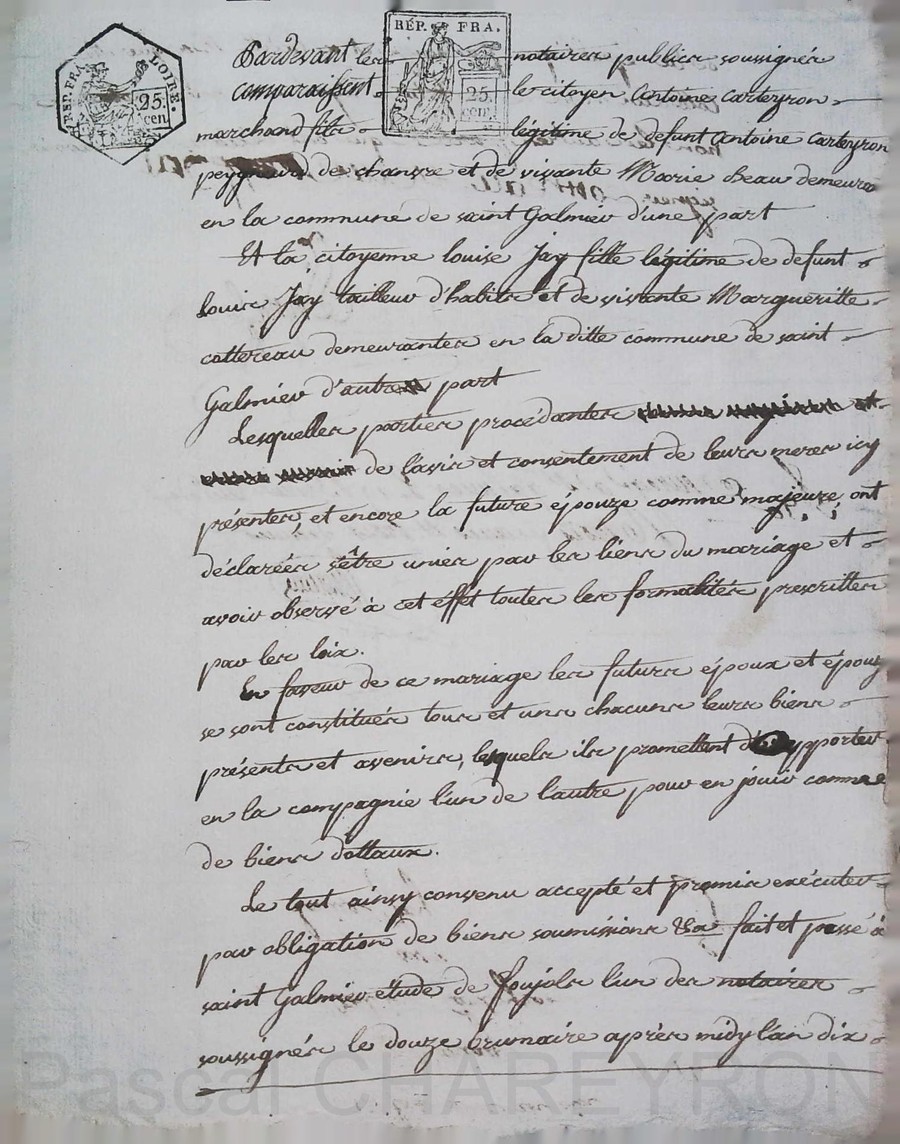 RÉP. FRA. LOIRE. 25. cen.
RÉP. FRA. 25 cen.
Pardevant les notaires publics soussignés
comparaissent le citoyen Antoine Carteyron
marchand fils légitime de defunt Antoine Carteyron
peygneur de chanvre et de vivante Marie Beau demeura
en la commune de saint Galmier d'une part
Et la citoyenne louise Jay fille légitime de defunt
Louis Jay tailleur d'habits et de vivante Margueritte
cottereau demeurantes en la ditte commune de saint
Galmier d'autre part
Lesquelles parties procédantes
de l'avis et consentement de leurs meres icy
présentes, et encore la future épouze comme majeure, ont
déclarées s'être unies par les liens du mariage et
avoir observé à cet éffet toutes les formalités prescrittes
par les loix.
En faveur de ce mariage les futurs époux et épouz
se sont constitués tous et uns chacuns leurs biens
présents et avenirs, lesquels ils promettent d'apporter
en la compagnie l'un de l'autre pour en jouir comme
de biens dottaux.
Le tout ainsy convenu accepté et promis exécuter
par obligation de biens soumissions &a fait et passé à
saint Galmier étude de foujols l'un des notaires
soussignés le douze brumaire après midy l'an dix
Pascal CHAREYRON